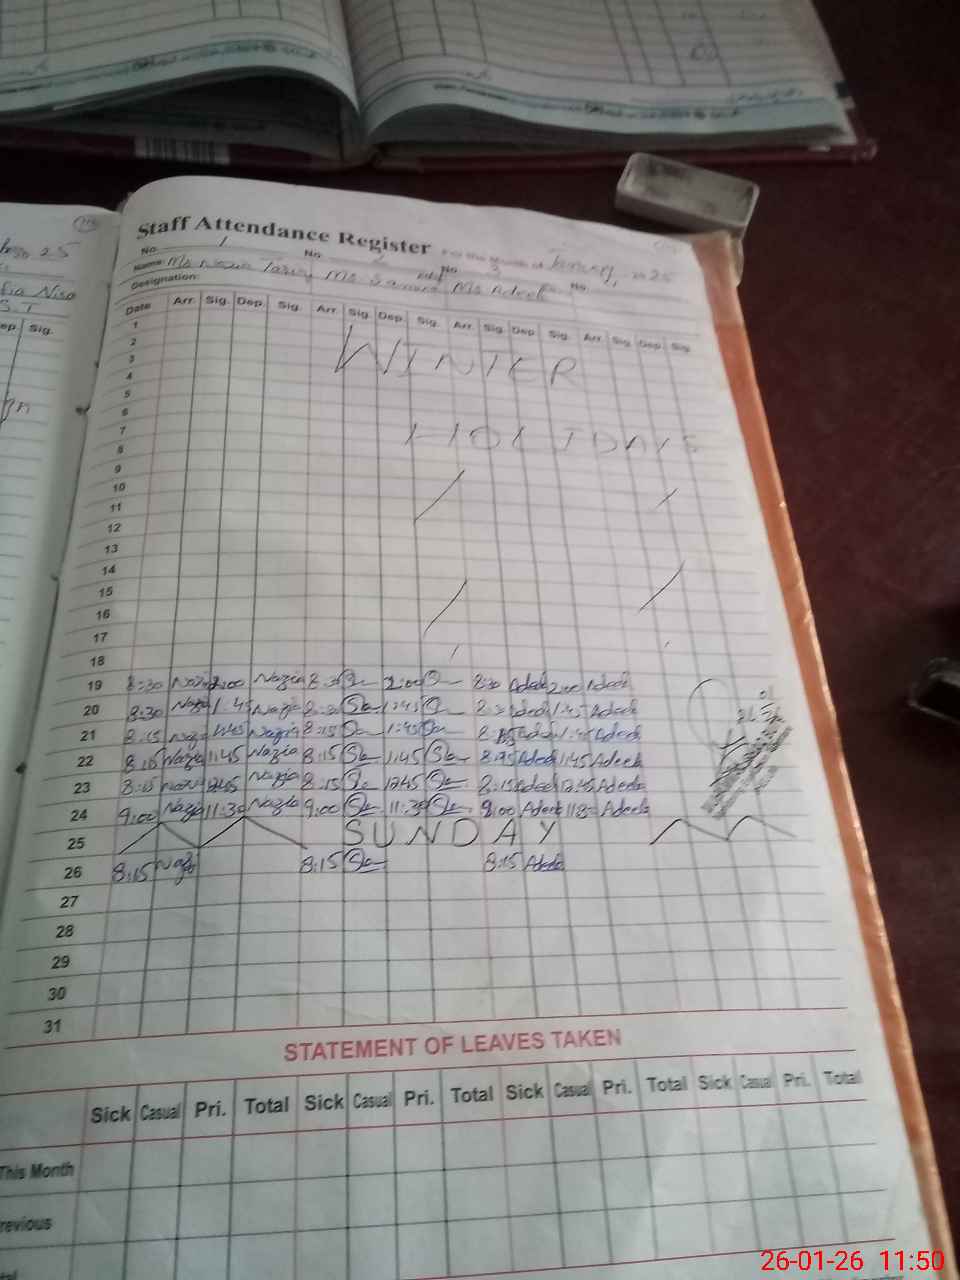 Staff Attendance Register For the Month of January, 2025
No. 1 No. 2 No. 3 No.
Name: Ms Nazia Ms Ms Adeela
Designation:
Date Arr. Sig. Dep. Sig. Arr. Sig. Dep. Sig. Arr. Sig. Dep. Sig. Arr. Sig. Dep. Sig.
1
2
WINTER
3
4
5
6
7
HOLIDAYS
8
9
10
11
12
13
14
15
16
17
18
19 8:30 Nazia 2:00 Nazia 8:30 2:00 8:30 Adeela 2:00 Adeela
20 8:30 Nazia 1:45 Nazia 8:30 1:45 8:30 Adeela 1:45 Adeela
21 8:15 Nazia 1:45 Nazia 8:15 1:45 8:15 Adeela 1:45 Adeela
22 8:15 Nazia 1:45 Nazia 8:15 1:45 8:15 Adeela 1:45 Adeela
23 8:15 Nazia 12:45 Nazia 8:15 12:45 8:15 Adeela 12:45 Adeela
24 9:00 Nazia 11:30 Nazia 9:00 11:30 9:00 Adeela 11:30 Adeela
25 SUNDAY
26 8:15 Nazia 8:15 8:15 Adeela
27
28
29
30
31
STATEMENT OF LEAVES TAKEN
Sick Casual Pri. Total Sick Casual Pri. Total Sick Casual Pri. Total Sick Casual Pri. Total
This Month
revious
26-01-26 11:50